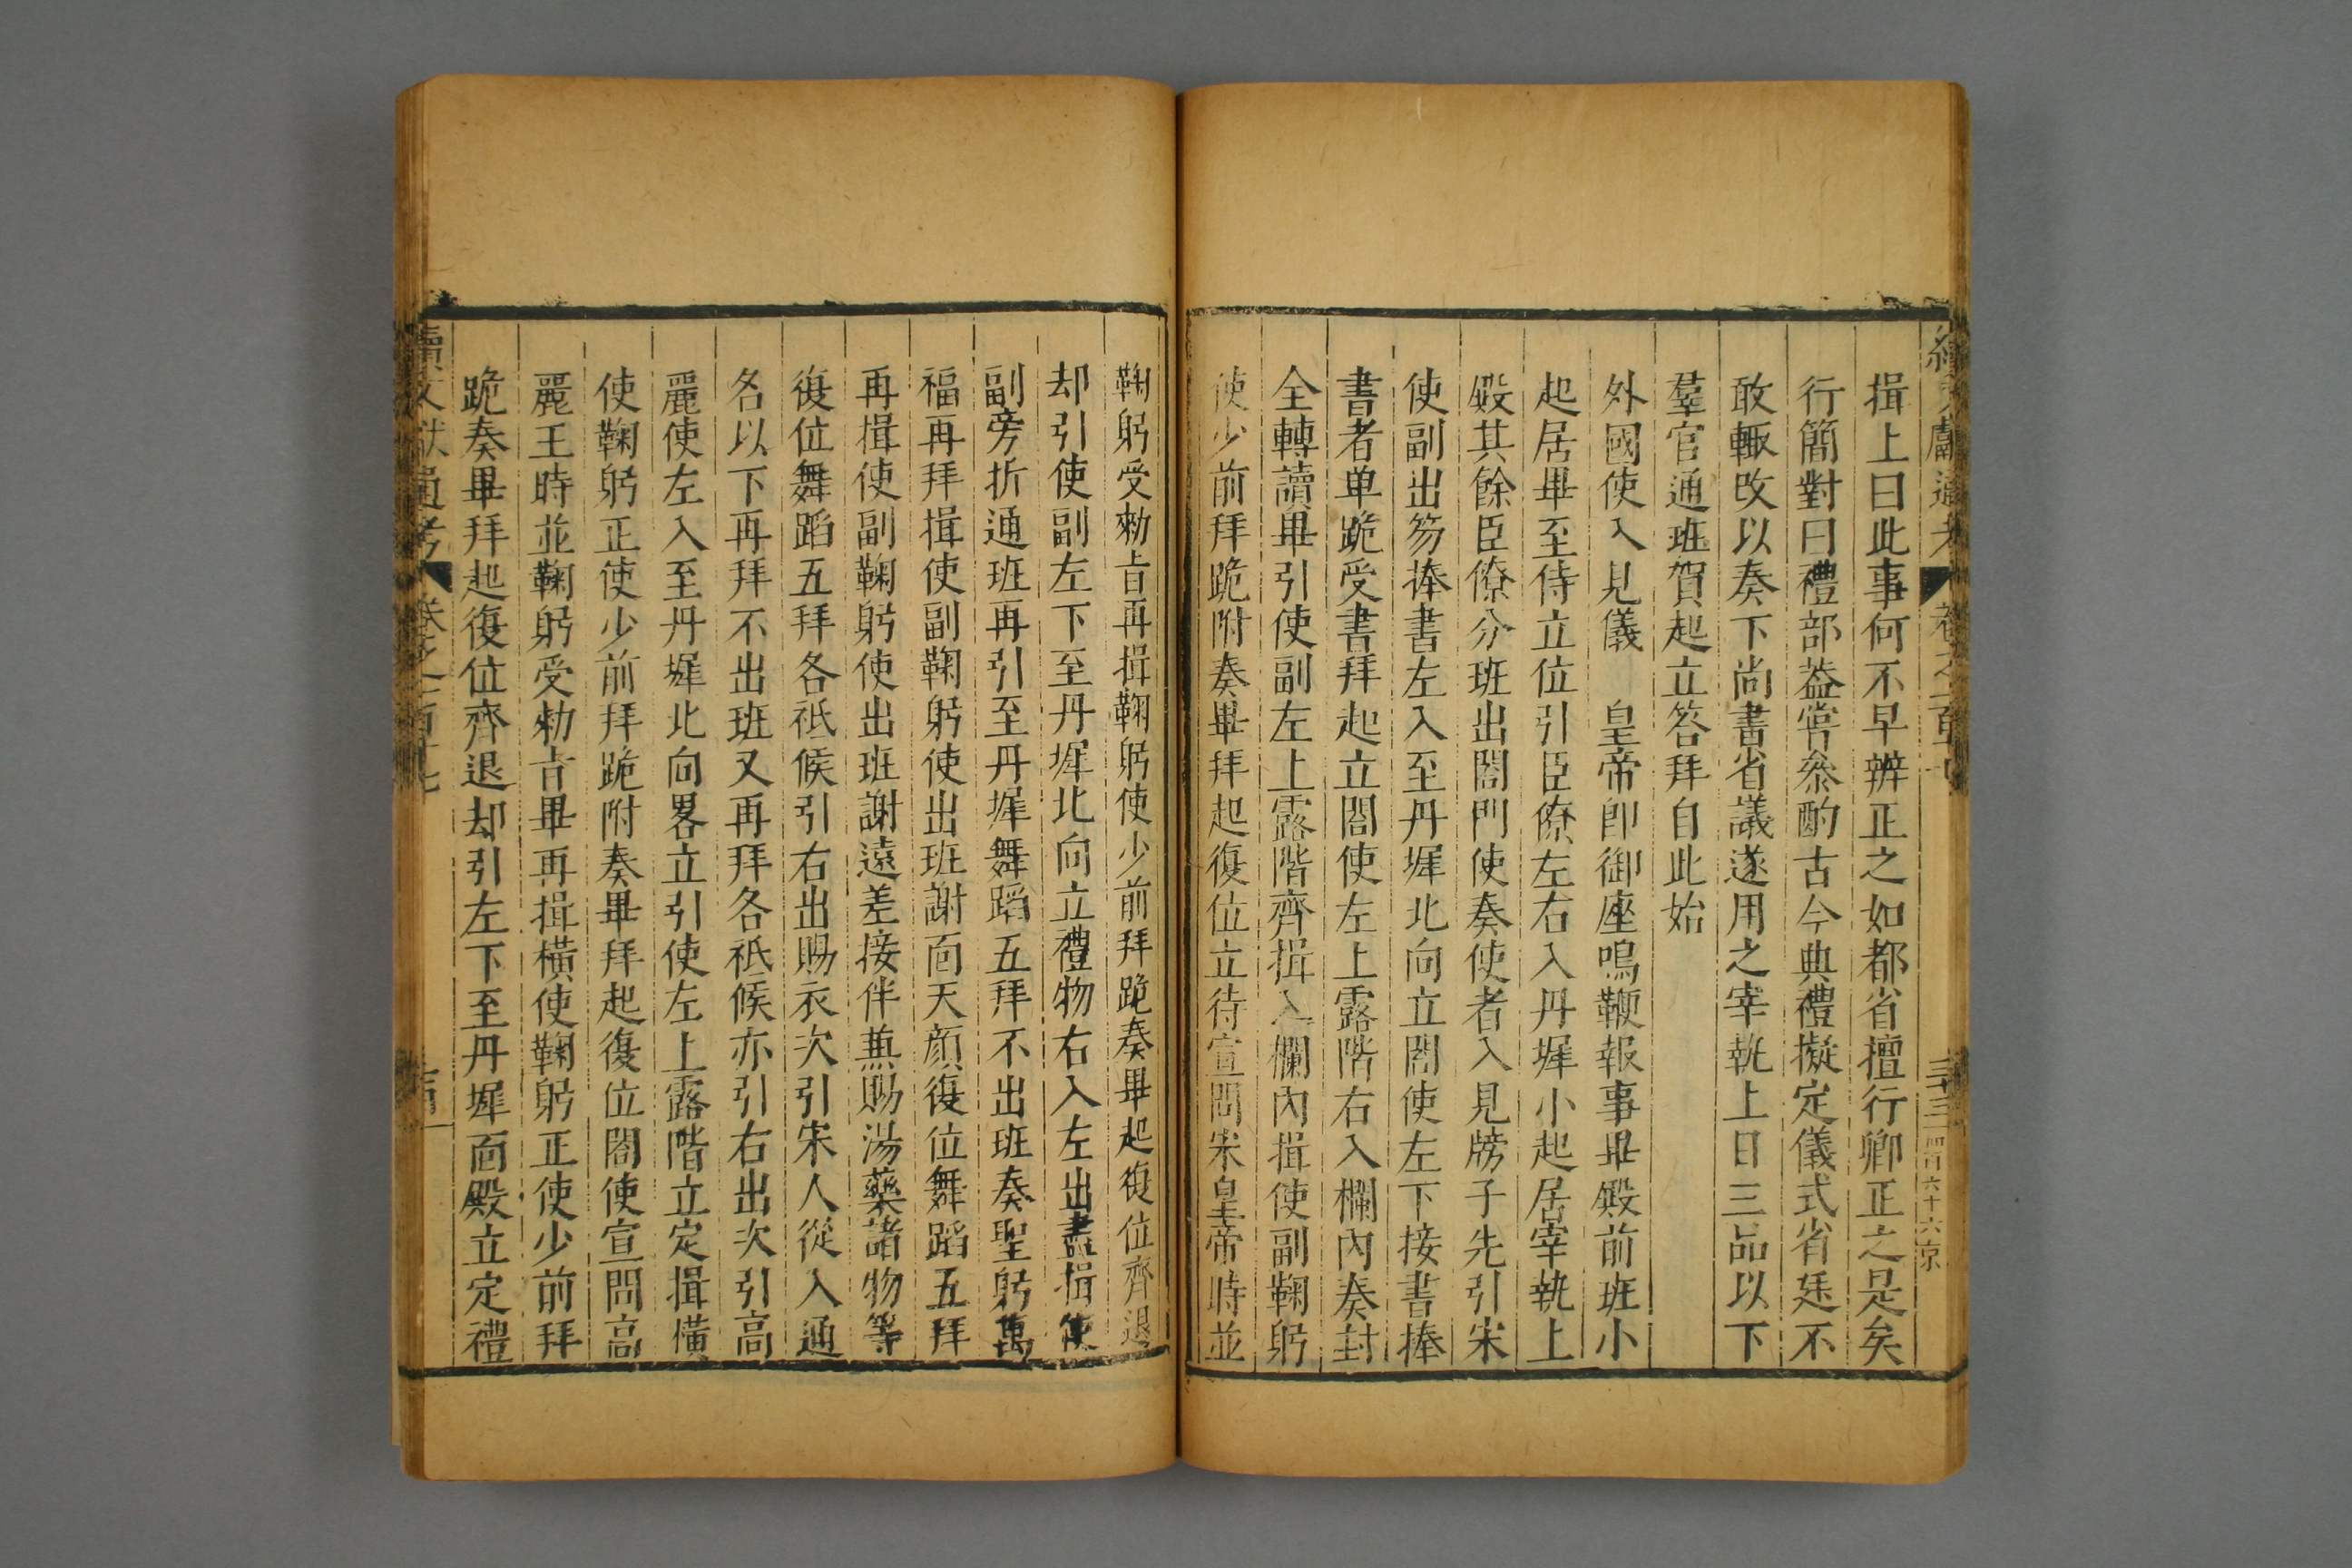 揖上曰此事何不早辨正之如都省擅行卿正之是矣
行簡對曰禮部葢嘗叅酌古今典禮擬定儀式省廷不
敢輙改以奏下尚書省議遂用之宰執上日三品以下
羣官通班賀起立答拜自此始
外國使入見儀　皇帝即御座鳴鞭報事畢殿前班小
起居畢至侍立位引臣僚左右入丹墀小起居宰執上
殿其餘臣僚分班出閤門使奏使者入見牓子先引宋
使副出笏捧書左入至丹墀北向立閤使左下接書捧
書者单跪受書拜起立閤使左上露階右入欄內奏封
全轉讀畢引使副左上露階齊揖入欄內揖使副鞠躬
使少前拜跪附奏畢拜起復位立待宣問宋皇帝時並
鞠躬受勑旨再揖鞠躬使少前拜跪奏畢起復位齊退
却引使副左下至丹墀北向立禮物右入左出盡揖使
副旁折通班再引至丹墀舞蹈五拜不出班奏聖躬萬
福再拜揖使副鞠躬使出班謝面天顔復位舞蹈五拜
再揖使副鞠躬使出班謝遠差接伴兼賜湯藥諸物等
復位舞蹈五拜各祗候引右出賜衣次引宋人從入通
名以下再拜不出班又再拜各祗候亦引右出次引高
麗使左入至丹墀北向畧立引使左上露階立定揖橫
使鞠躬正使少前拜跪附奏畢拜起復位閤使宣問高
麗王時並鞠躬受勑旨畢再揖橫使鞠躬正使少前拜
跪奏畢拜起復位齊退却引左下至丹墀面殿立定禮